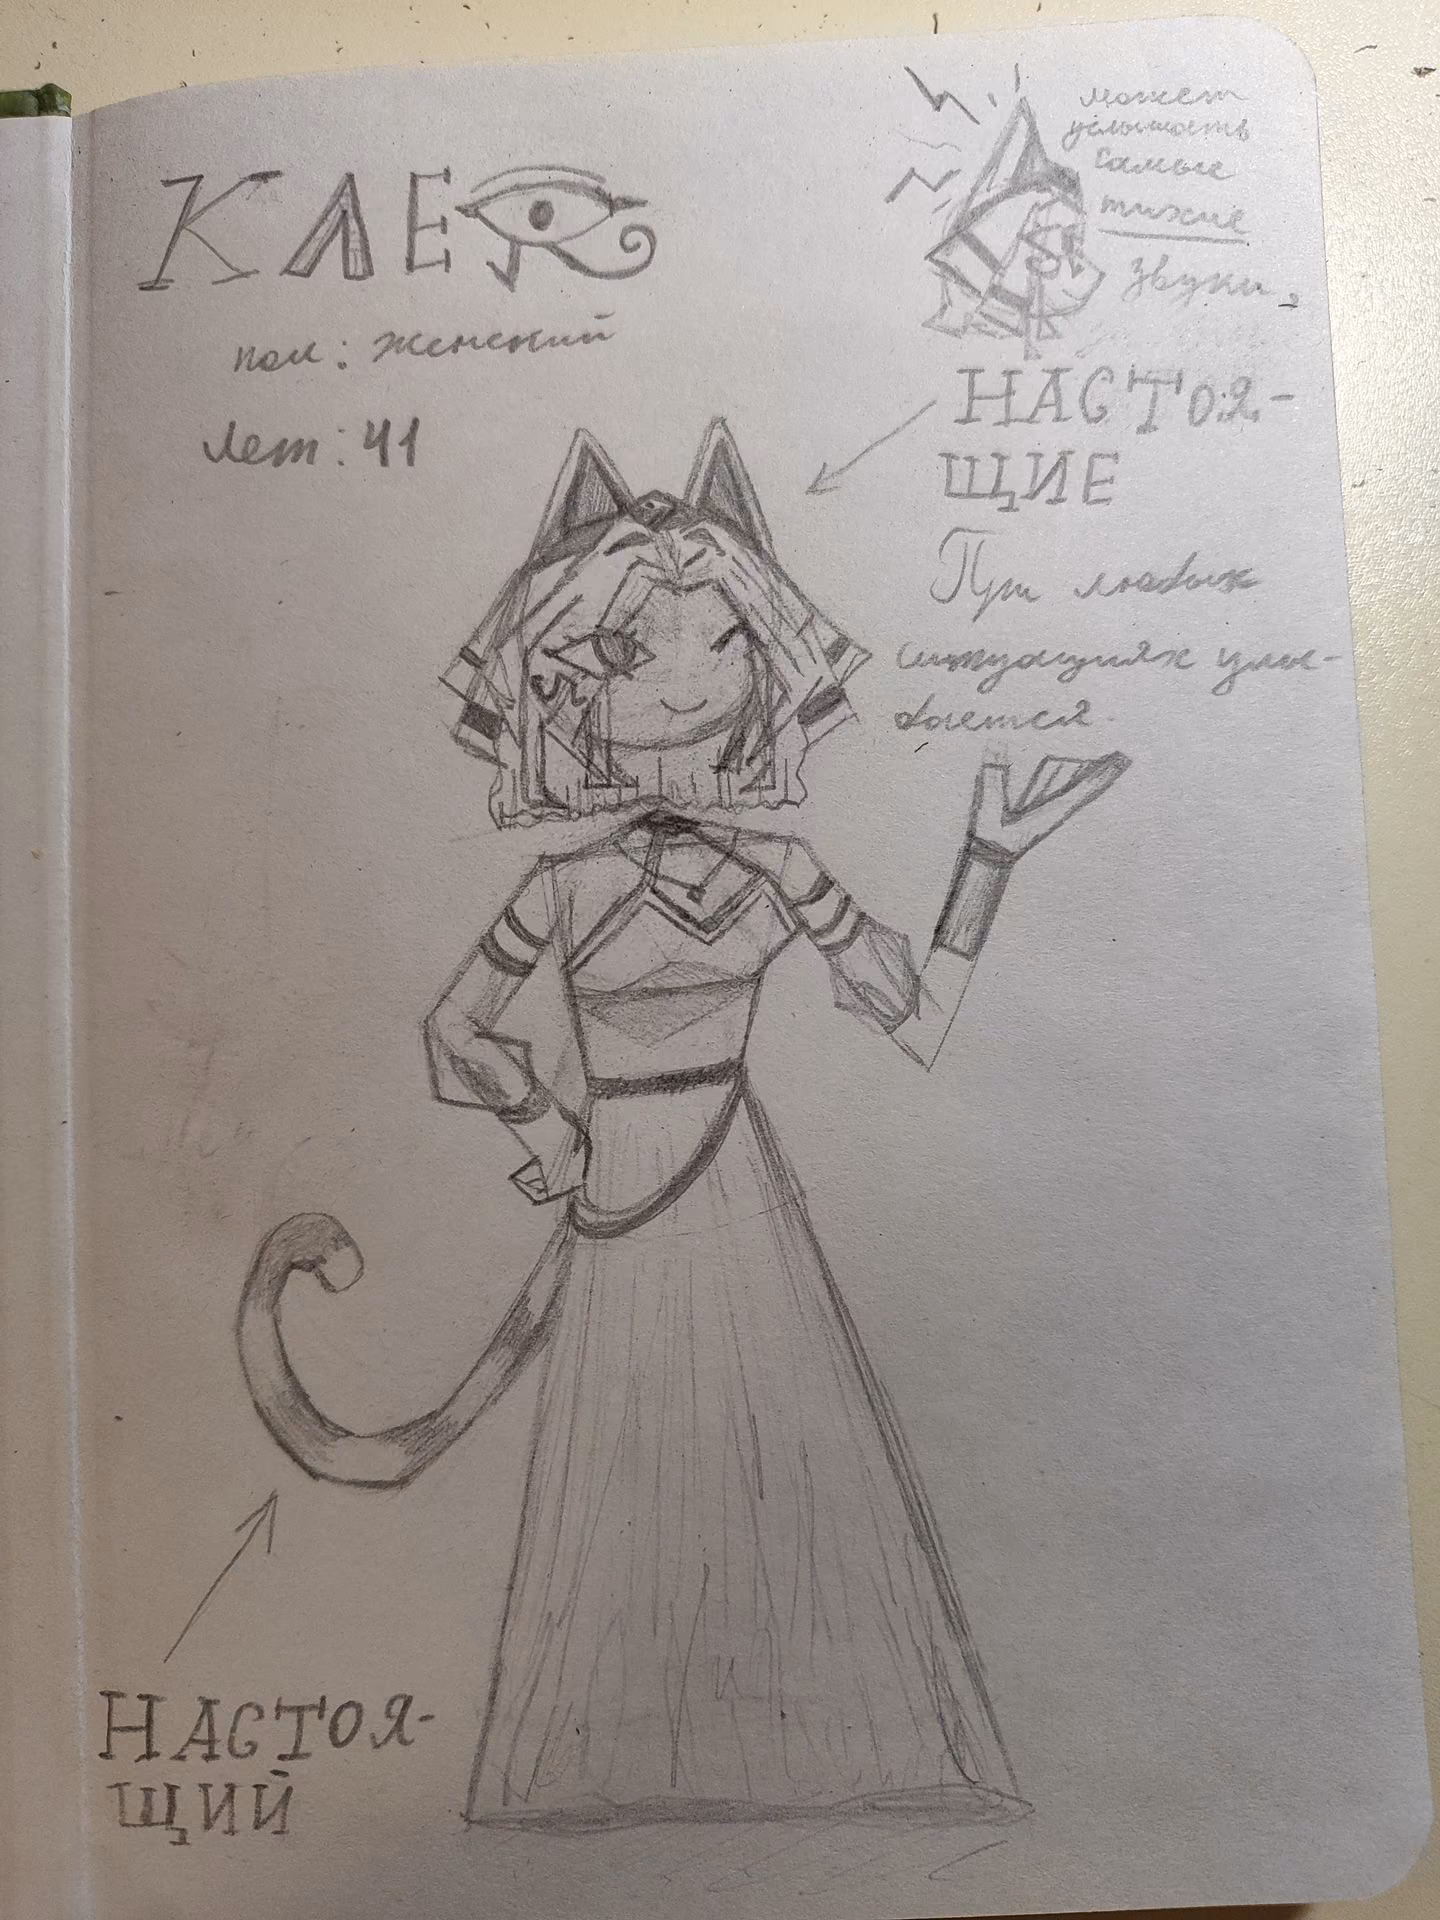 КЛЕО
пол: женский
Лет: 41
может
услышать
самые
тихие
звуки.
НАСТОЯ-
ЩИЕ
При любых
ситуациях улы-
бается.
НАСТОЯ-
ЩИЙ